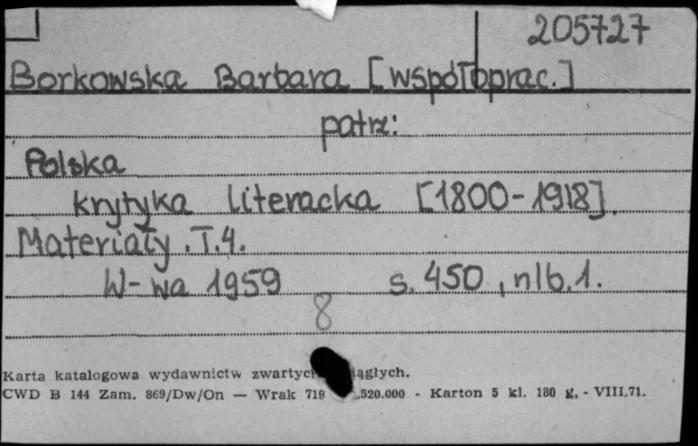 205727
Borkowska Barbara [współoprac.]
patrz:
Polska
krytyka literacka [1800-1918].
Materiały. T.4.
W-wa 1959 s. 450, nlb. 1.
8
Karta katalogowa wydawnictw
CWD B 144 Zam. 869/Dw/On — Wrak 719 520.000 - Karton 5 kl. 180 g, - VIII.71.